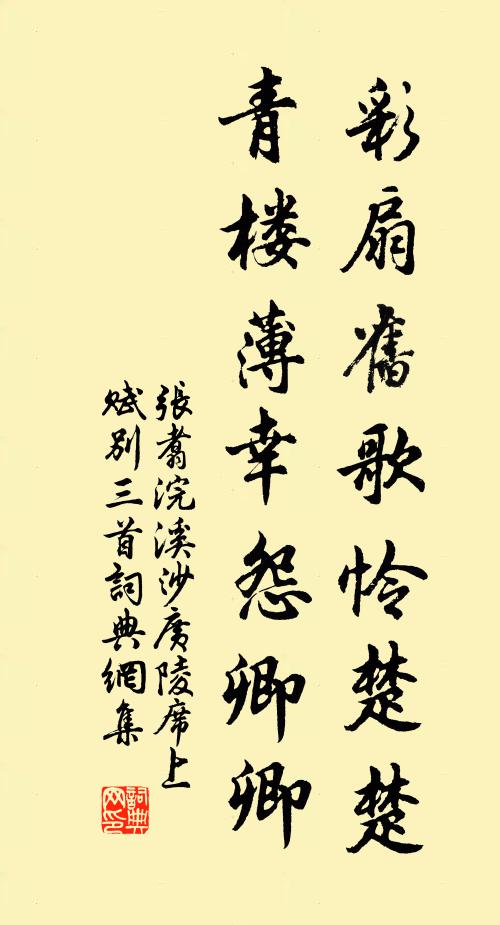 彩扇舊歌怜楚楚
青楼薄幸怨卿卿
張翥浣溪沙廣陵席上
賦别三首詞典網集
詞典网印